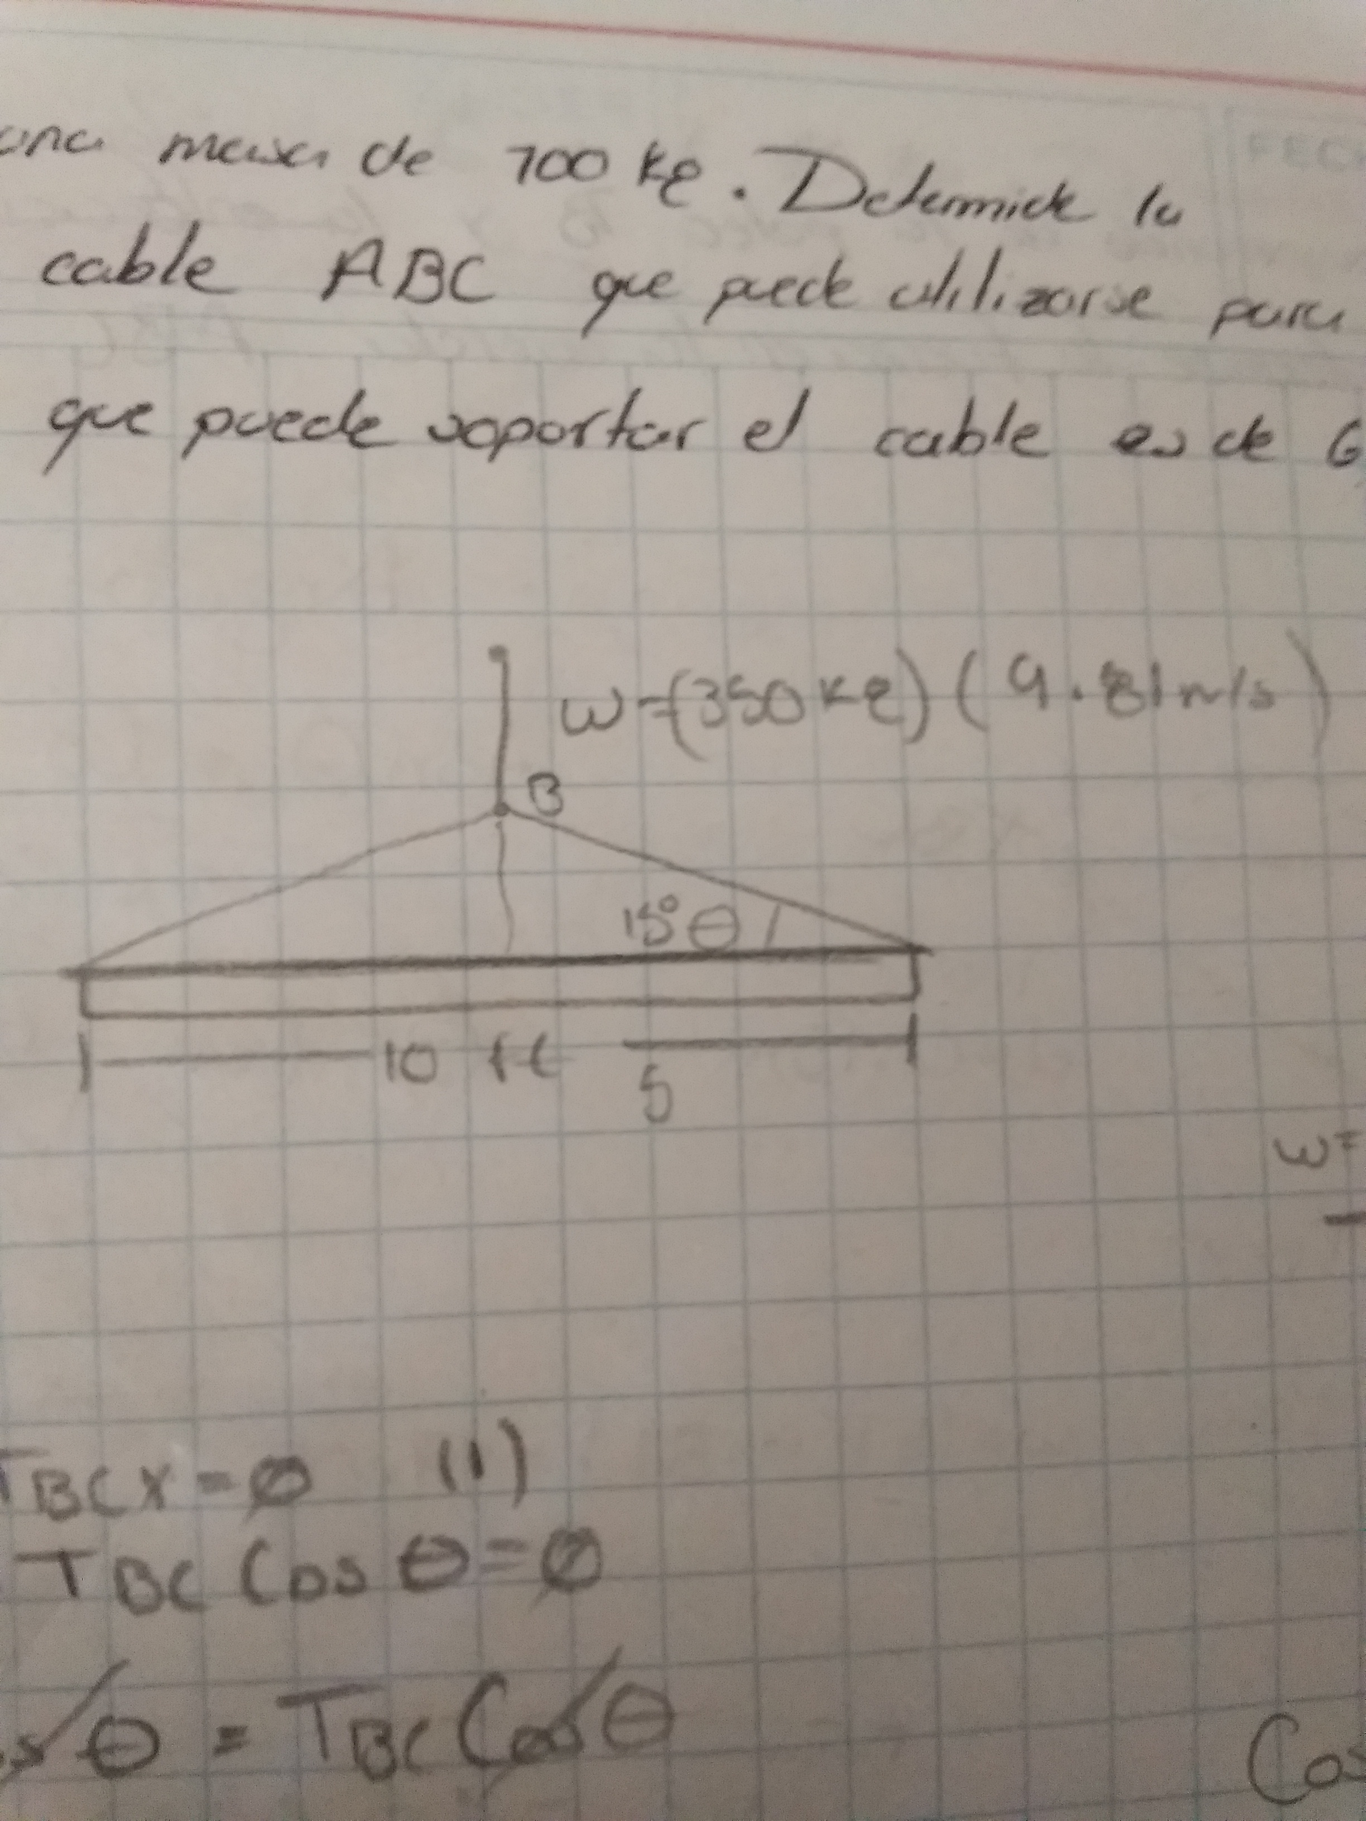 una masa de 700 kg. Determide la
cable ABC que puede utilizarse para
que puede soportar el cable es de 6
W=(350 kg) (9.81m/s)
B
15° θ
10 ft
5
W=
TBCX = 0 (1)
TBC Cos θ = 0
s θ = TBC Cos θ
Cos